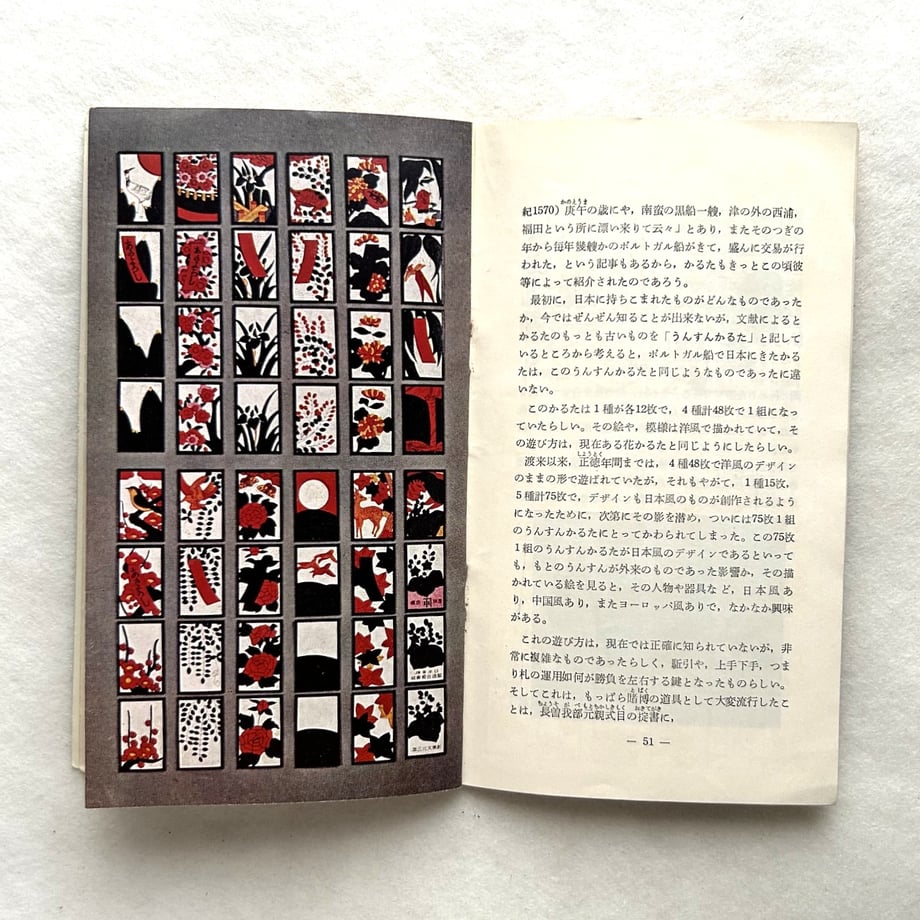 あかよろし
あかよろし
紀1570)庚午の歳にや，南蛮の黒船一艘，津の外の西浦，
福田という所に漂い来りて云々」とあり，またそのつぎの
年から毎年幾艘かのポルトガル船がきて，盛んに交易が行
われた，という記事もあるから，かるたもきっとこの頃彼
等によって紹介されたのであろう。
最初に，日本に持ちこまれたものがどんなものであった
か，今ではぜんぜん知ることが出来ないが，文献によると
かるたのもっとも古いものを「うんすんかるた」と記して
いるところから考えると，ポルトガル船で日本にきたかる
たは，このうんすんかるたと同じようなものであったに違
いない。
このかるたは１種が各12枚で，４種計48枚で１組になっ
ていたらしい。その絵や，模様は洋風で描かれていて，そ
の遊び方は，現在ある花かるたと同じようにしたらしい。
渡来以来，正徳年間までは，４種48枚で洋風のデザイン
のままの形で遊ばれていたが，それもやがて，１種15枚，
５種計75枚で，デザインも日本風のものが創作されるよう
になったために，次第にその影を潜め，ついには75枚１組
のうんすんかるたにとってかわられてしまった。この75枚
１組のうんすんかるたが日本風のデザインであるといって
も，もとのうんすんが外来のものであった影響か，その描
かれている絵を見ると，その人物や器具など，日本風あ
り，中国風あり，またヨーロッパ風ありで，なかなか興味
がある。
これの遊び方は，現在では正確に知られていないが，非
常に複雑なものであったらしく，駈引や，上手下手，つま
り札の運用如何が勝負を左右する鍵となったものらしい。
そしてこれは，もっぱら賭博の道具として大変流行したこ
とは，長曽我部元親式目の掟書に，
— 51 —